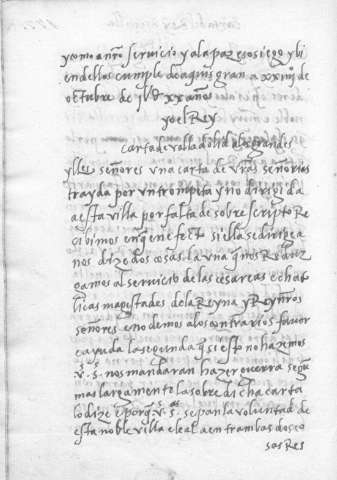 y como a n̄ro servicio y a la paz e sosiego y bi
en dellos cumple de aquisgran a xxiiij de
octubre de j U d xx años
yo el Rey
carta de valladolid a los grandes
ylles señores vna carta de vr̄as señorias
trayda por vn trompeta y no dirigida
a esta villa por falta de sobre scripto Re
cibimos en q̄ en efecto si a ella se dirige a
nos dize dos cosas la vna q̄ nos Reduz
gamos al servicio de las cesareas e chato
licas magestades de la Reyna y Rey nr̄os
señores e no demos a los contrarios favor
e ayuda la segunda q̄ si esto no hazemos
v. s. nos mandaran hazer guerra segun
mas largamente la sobre dicha carta
lo dize e porq̄ v. s. sepan la voluntad de
esta noble villa e leal a entrambas do s co
sas Res